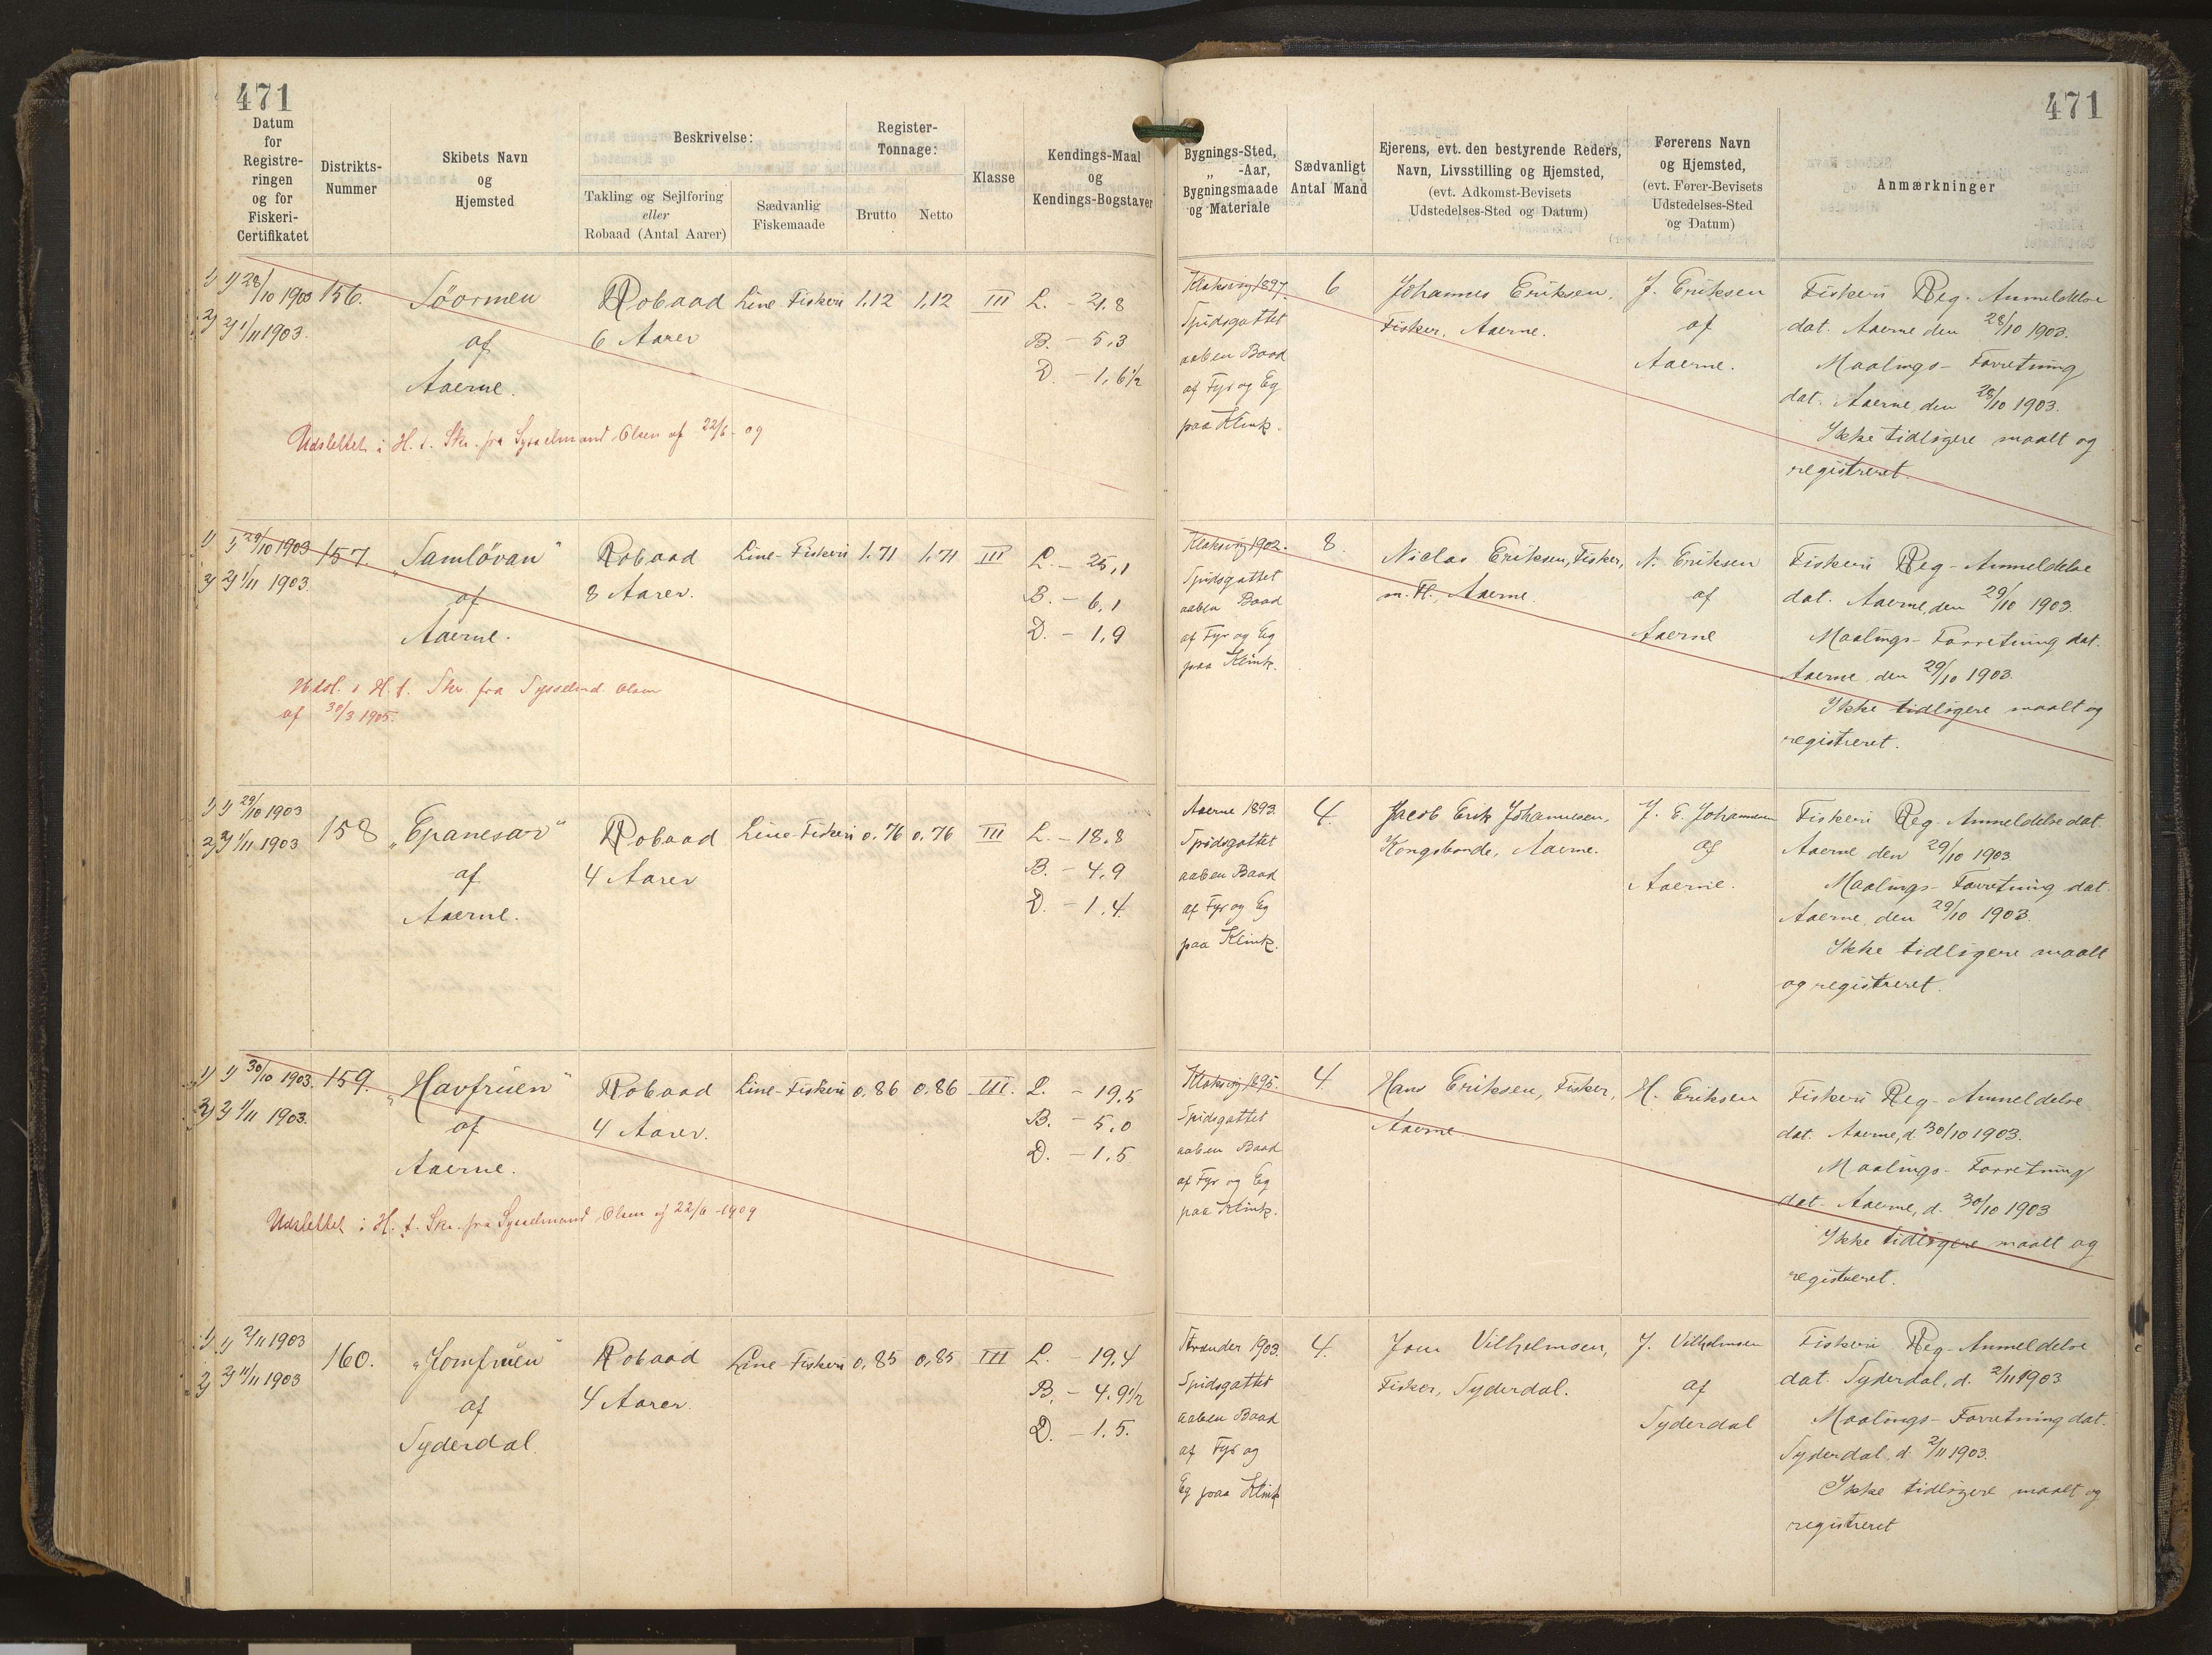 471
471
Datum
for
Registre-
ringen
og for
Fiskeri-
Certifikatet
Distrikts-
Nummer
Skibets Navn
og
Hjemsted
Beskrivelse:
Takling og Sejlføring
eller
Robaad (Antal Aarer)
Sædvanlig
Fiskemaade
Register-
Tonnage:
Brutto
Netto
Klasse
Kendings-Maal
og
Kendings-Bogstaver
Bygnings-Sted,
„ -Aar,
Bygningsmaade
og Materiale
Sædvanligt
Antal Mand
Ejerens, evt. den bestyrende Reders,
Navn, Livsstilling og Hjemsted,
(evt. Adkomst-Bevisets
Udstedelses-Sted og Datum)
Førerens Navn
og Hjemsted,
(evt. Fører-Bevisets
Udstedelses-Sted
og Datum)
Anmærkninger
1) 1) 28/10 1903
2) 2) 1/11 1903.
156.
Söormen
af
Aaerne.
Robaad
6 Aarer
Line-Fiskeri
1,12
1,12
III
L. - 21,8
B. - 5,3
D. - 1,6½
Klaksvig 1897.
Spidsgattet
aaben Baad
af Fyr og Eg
paa Klink.
6
Johannes Eriksen,
Fisker, Aaerne.
J. Eriksen
af
Aaerne.
Fiskeri Reg. Anmeldelse
dat. Aaerne den 28/10 1903.
Maalings-Forretning
dat. Aaerne, den 28/10 1903.
Ikke tidligere maalt og
registreret.
Udslettet i H. t. Skr. fra Sysselmand Olsen af 22/6 - 09
1) 1) 29/10 1903
2) 2) 1/11 1903.
157.
„Samlövan"
af
Aaerne.
Robaad
8 Aarer.
Line-Fiskeri
1,71
1,71
III
L. - 25,1
B. - 6,1
D. - 1,9
Klaksvig 1902.
Spidsgattet
aaben Baad
af Fyr og Eg
paa Klink.
8.
Niclas Eriksen, Fisker,
m. Fl., Aaerne.
N. Eriksen
af
Aaerne
Fiskeri Reg-Anmeldelse
dat. Aaerne, den 29/10 1903.
Maalings-Forretning dat.
Aaerne, den 29/10 1903.
Ikke tidligere maalt og
registreret.
Udsl. i H. t. Skr. fra Sysselmd. Olsen
af 30/3 1905.
1) 1) 29/10 1903
2) 2) 1/11 1903
158
„Epanesar"
af
Aaerne.
Robaad
4 Aarer
Line-Fiskeri
0,76
0,76
III
L. - 18,8
B. - 4,9
D. - 1,4.
Aaerne 1893.
Spidsgattet
aaben Baad
af Fyr og Eg
paa Klink.
4.
Jacob Erik Johannesen,
Kongsbonde, Aaerne.
J. E. Johannesen
af
Aaerne.
Fiskeri Reg-Anmeldelse dat.
Aaerne den 29/10 1903.
Maalings-Forretning dat.
Aaerne, den 29/10 1903.
Ikke tidligere maalt
og registreret.
1) 1) 30/10 1903.
2) 2) 1/11 1903.
159.
„Havfruen"
af
Aaerne.
Robaad
4 Aarer.
Line-Fiskeri
0,86
0,86
III.
L. - 19,5
B. - 5,0
D. - 1,5
Klaksvig 1895.
Spidsgattet
aaben Baad
af Fyr og Eg
paa Klink.
4.
Hans Eriksen, Fisker,
Aaerne
H. Eriksen
Fiskeri Reg-Anmeldelse
dat. Aaerne, d. 30/10 1903.
Maalings-Forretning
dat. Aaerne, d. 30/10 1903
Ikke tidligere maalt og
registreret.
Udslettet i H. t. Skr. fra Sysselmand Olsen af 22/6 - 1909
1) 1) 2/11 1903
2) 2) 11/11 1903
160.
„Jomfruen"
af
Syderdal.
Robaad
4 Aarer.
Line Fiskeri
0,85
0,85
III
L. - 19,4
B. - 4,9½
D. - 1,5.
Strander 1903.
Spidsgattet
aaben Baad
af Fyr og
Eg paa Klink
4.
Joen Vilhelmsen,
Fisker, Syderdal.
J. Vilhelmsen
af
Syderdal
Fiskeri Reg-Anmeldelse
dat. Syderdal, d. 2/11 1903
Maalings-Forretning dat.
Syderdal, d. 2/11 1903.
Ikke tidligere maalt og
registreret